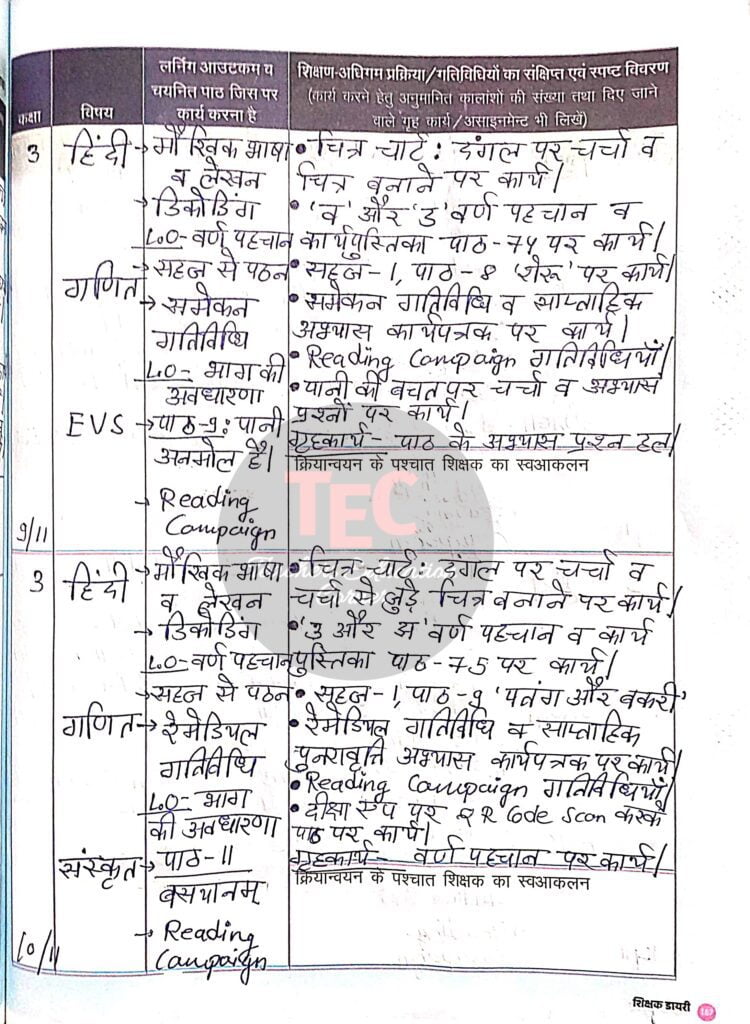 कक्षा
विषय
लर्निंग आउटकम व
चयनित पाठ जिस पर
कार्य करना है
शिक्षण-अधिगम प्रक्रिया/गतिविधियों का संक्षिप्त एवं स्पष्ट विवरण
(कार्य करने हेतु अनुमानित कालांशों की संख्या तथा दिए जाने
वाले गृह कार्य/असाइनमेन्ट भी लिखें)
3
हिंदी
→ मौखिक भाषा
व लेखन
→ डिकोडिंग
LO- वर्ण पहचान
→ सहज से पठन
गणित
→ समेकन
गतिविधि
LO- भाग की
अवधारणा
EVS
→ पाठ-9: पानी
अनमोल है।
→ Reading
Campaign
9/11
• चित्र चार्ट: दंगल पर चर्चा व
चित्र बनाने पर कार्य।
• 'व' और 'ड' वर्ण पहचान व
कार्यपुस्तिका पाठ-74 पर कार्य।
• सहज-1, पाठ-8 'शेरू' पर कार्य।
• समेकन गतिविधि व साप्ताहिक
अभ्यास कार्यपत्रक पर कार्य।
• Reading Campaign गतिविधियाँ।
• पानी की बचत पर चर्चा व अभ्यास
प्रश्नों पर कार्य।
गृहकार्य- पाठ के अभ्यास प्रश्न हल।
क्रियान्वयन के पश्चात शिक्षक का स्वआकलन
TEC
3
हिंदी
→ मौखिक भाषा
व लेखन
→ डिकोडिंग
LO- वर्ण पहचान
→ सहज से पठन
गणित
→ रेमेडियल
गतिविधि
LO- भाग
की अवधारणा
संस्कृत
→ पाठ-11
बसयानम्
→ Reading
Campaign
10/11
• चित्र चार्ट: दंगल पर चर्चा व
चर्चा से जुड़े चित्र बनाने पर कार्य।
• 'उ और अ' वर्ण पहचान व कार्य
पुस्तिका पाठ-75 पर कार्य।
• सहज-1, पाठ-9 'पतंग और बकरी'
• रेमेडियल गतिविधि व साप्ताहिक
पुनरावृत्ति अभ्यास कार्यपत्रक पर कार्य।
• Reading Campaign गतिविधियाँ।
• दीक्षा एप पर QR Code Scan करके
पाठ पर कार्य।
गृहकार्य- वर्ण पहचान पर कार्य।
क्रियान्वयन के पश्चात शिक्षक का स्वआकलन
शिक्षक डायरी